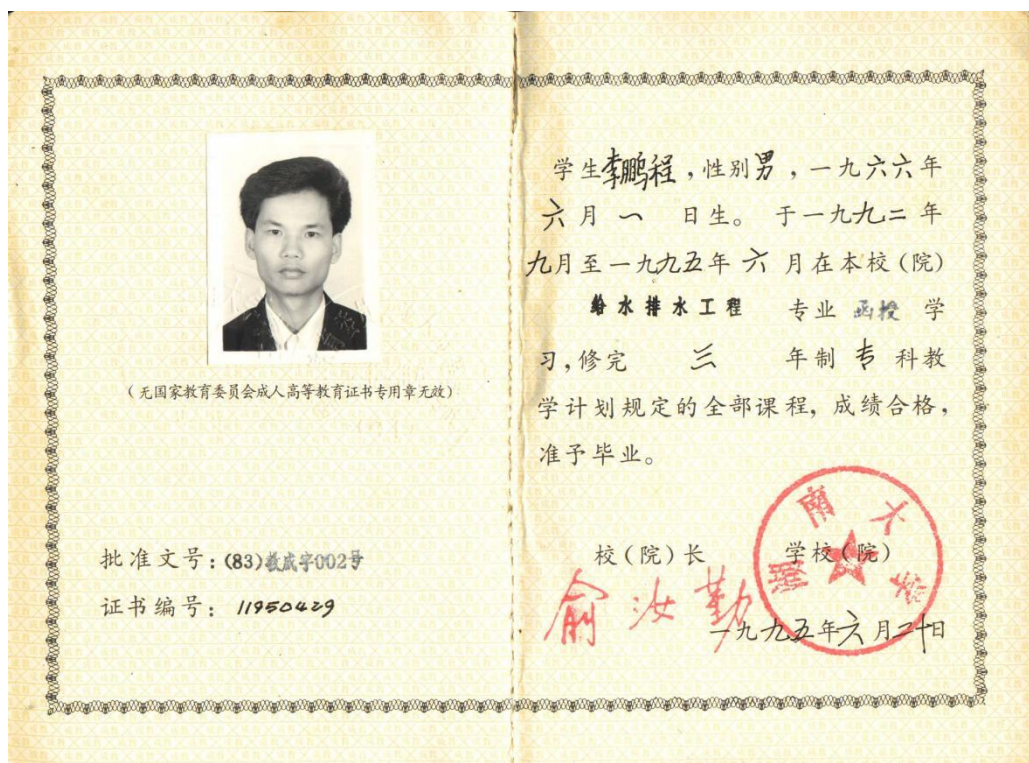 (无国家教育委员会成人高等教育证书专用章无效)
批准文号:(83)教成字002号
证书编号:11950429
学生李鹏程,性别男,一九六六年
六月一日生。于一九九二年
九月至一九九五年六月在本校(院)
给水排水工程 专业 函授 学
习,修完 三 年制 专 科教
学计划规定的全部课程,成绩合格,
准予毕业。
校(院)长 学校(院)
俞汝勤
湖南大学
一九九五年六月二十日